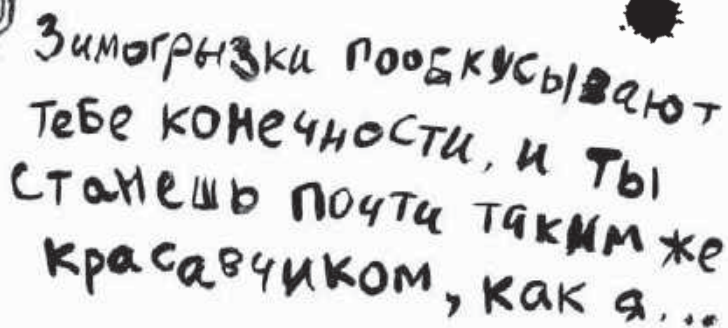 Зимогрызки пообкусывают
тебе конечности, и ты
станешь почти таким же
красавчиком, как я...